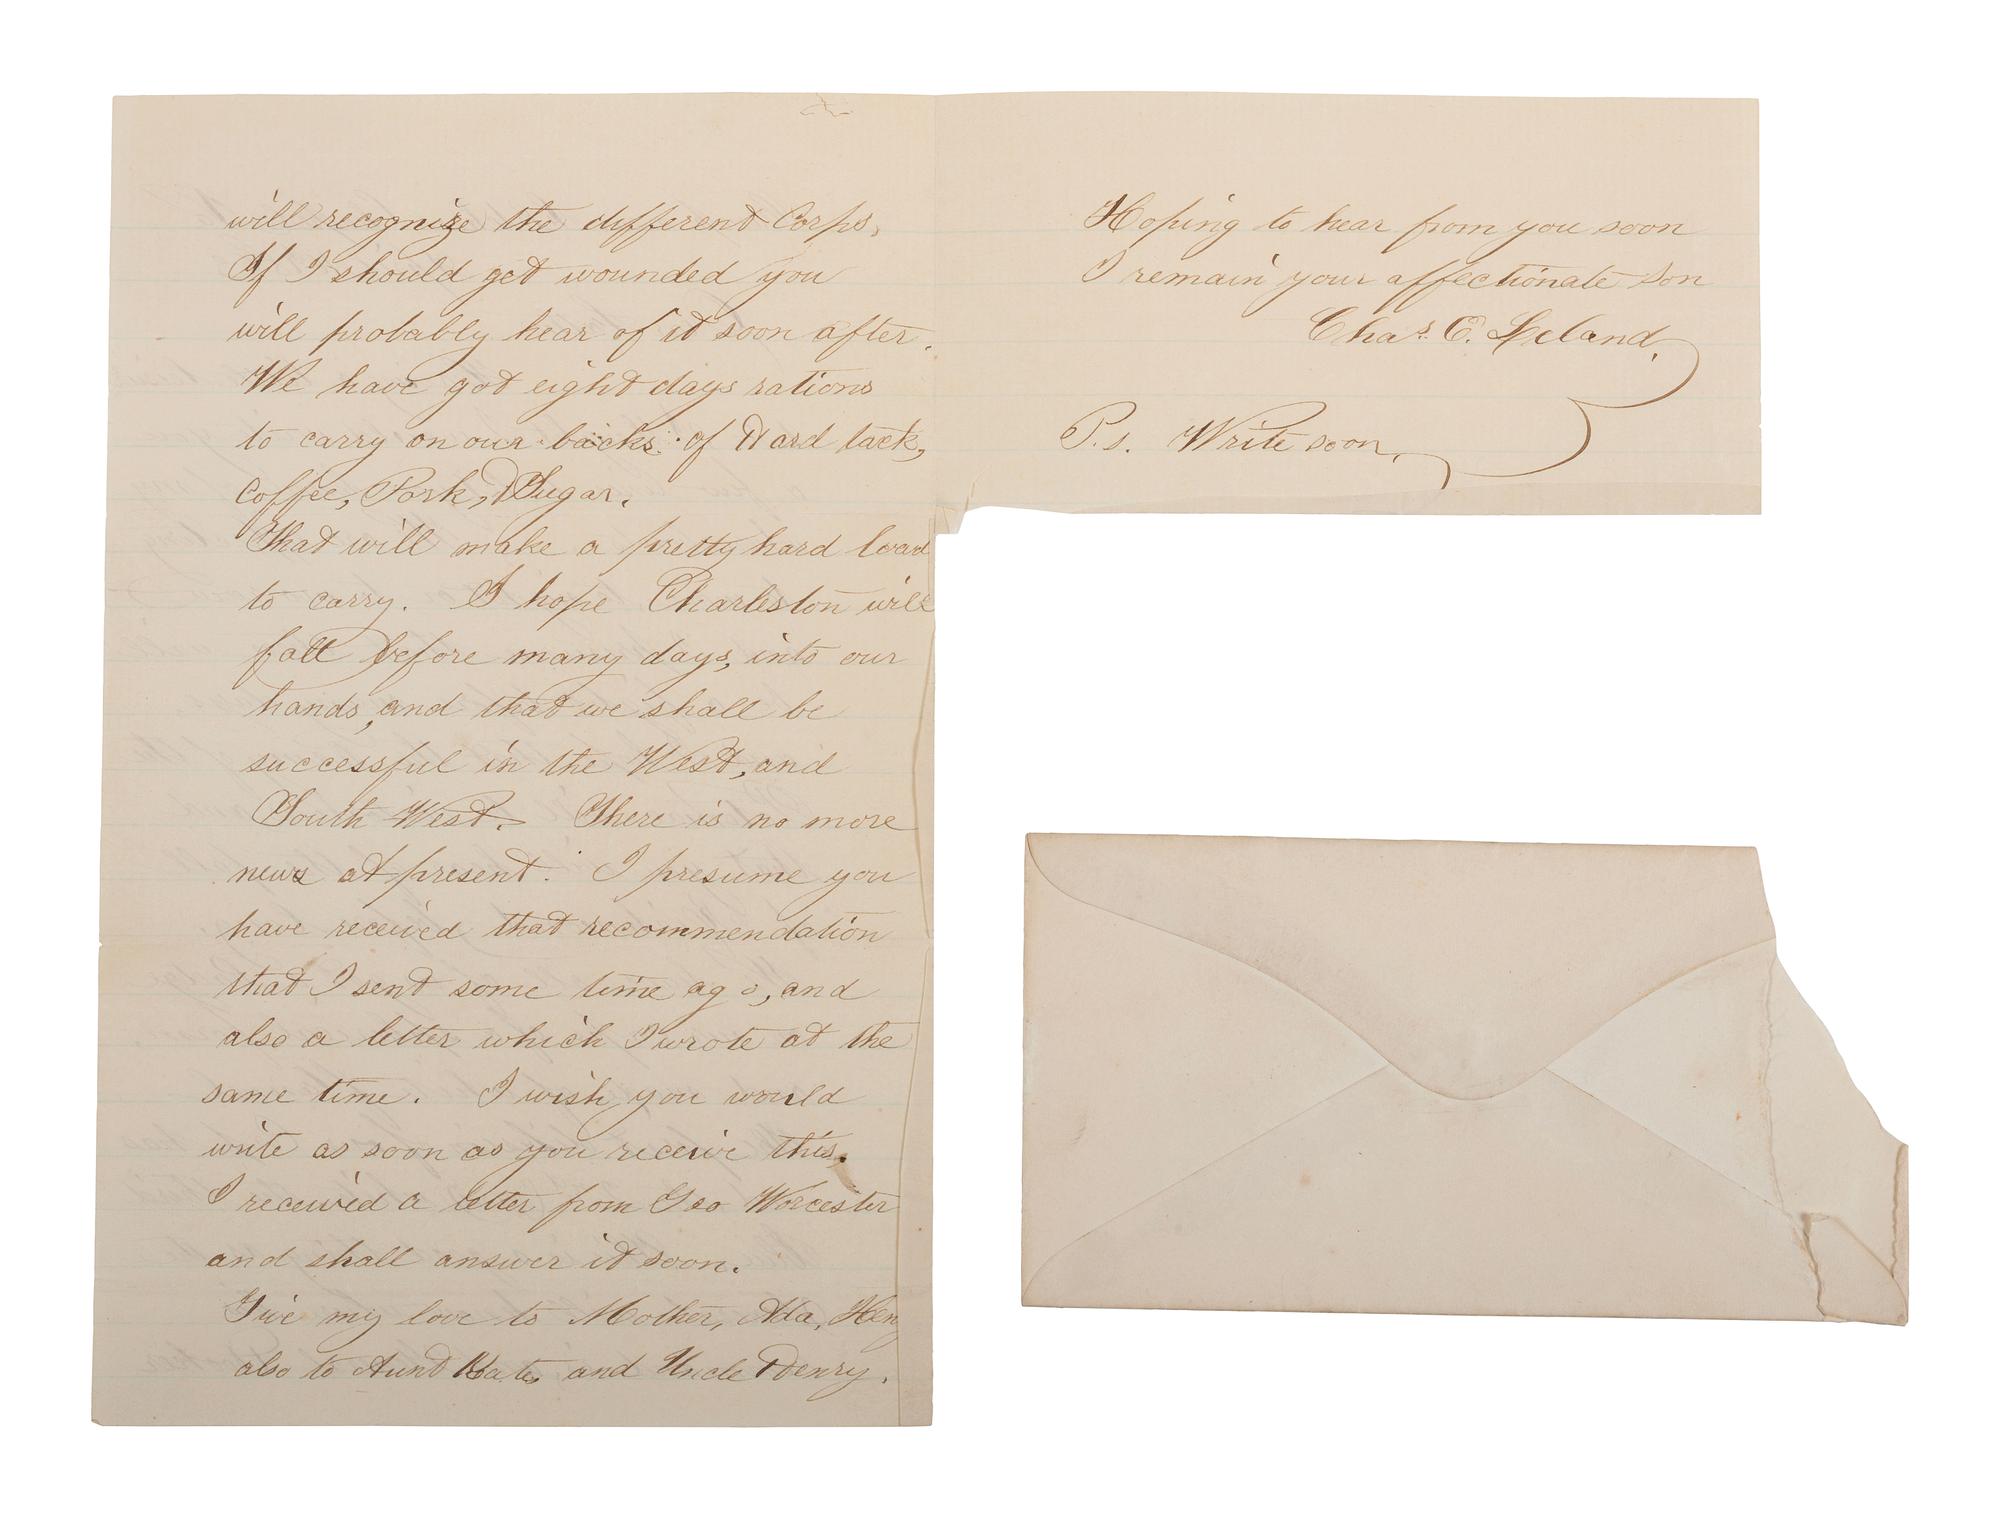 will recognize the different Corps,
If I should get wounded you
will probably hear of it soon after.
We have got eight days rations
to carry on our backs of Hard tack,
Coffee, Pork, & Sugar.
That will make a pretty hard load
to carry. I hope Charleston will
fall before many days, into our
hands, and that we shall be
successful in the West, and
South West. There is no more
news at present. I presume you
have received that recommendation
that I sent some time ago, and
also a letter which I wrote at the
same time. I wish you would
write as soon as you receive this.
I received a letter from Geo Worcester
and shall answer it soon.
Give my love to Mother, Ada, Heny
also to Aunt Kate, and Uncle Henry.
Hoping to hear from you soon
I remain your affectionate son
Chas. E. Leland.
P.s. Write soon.